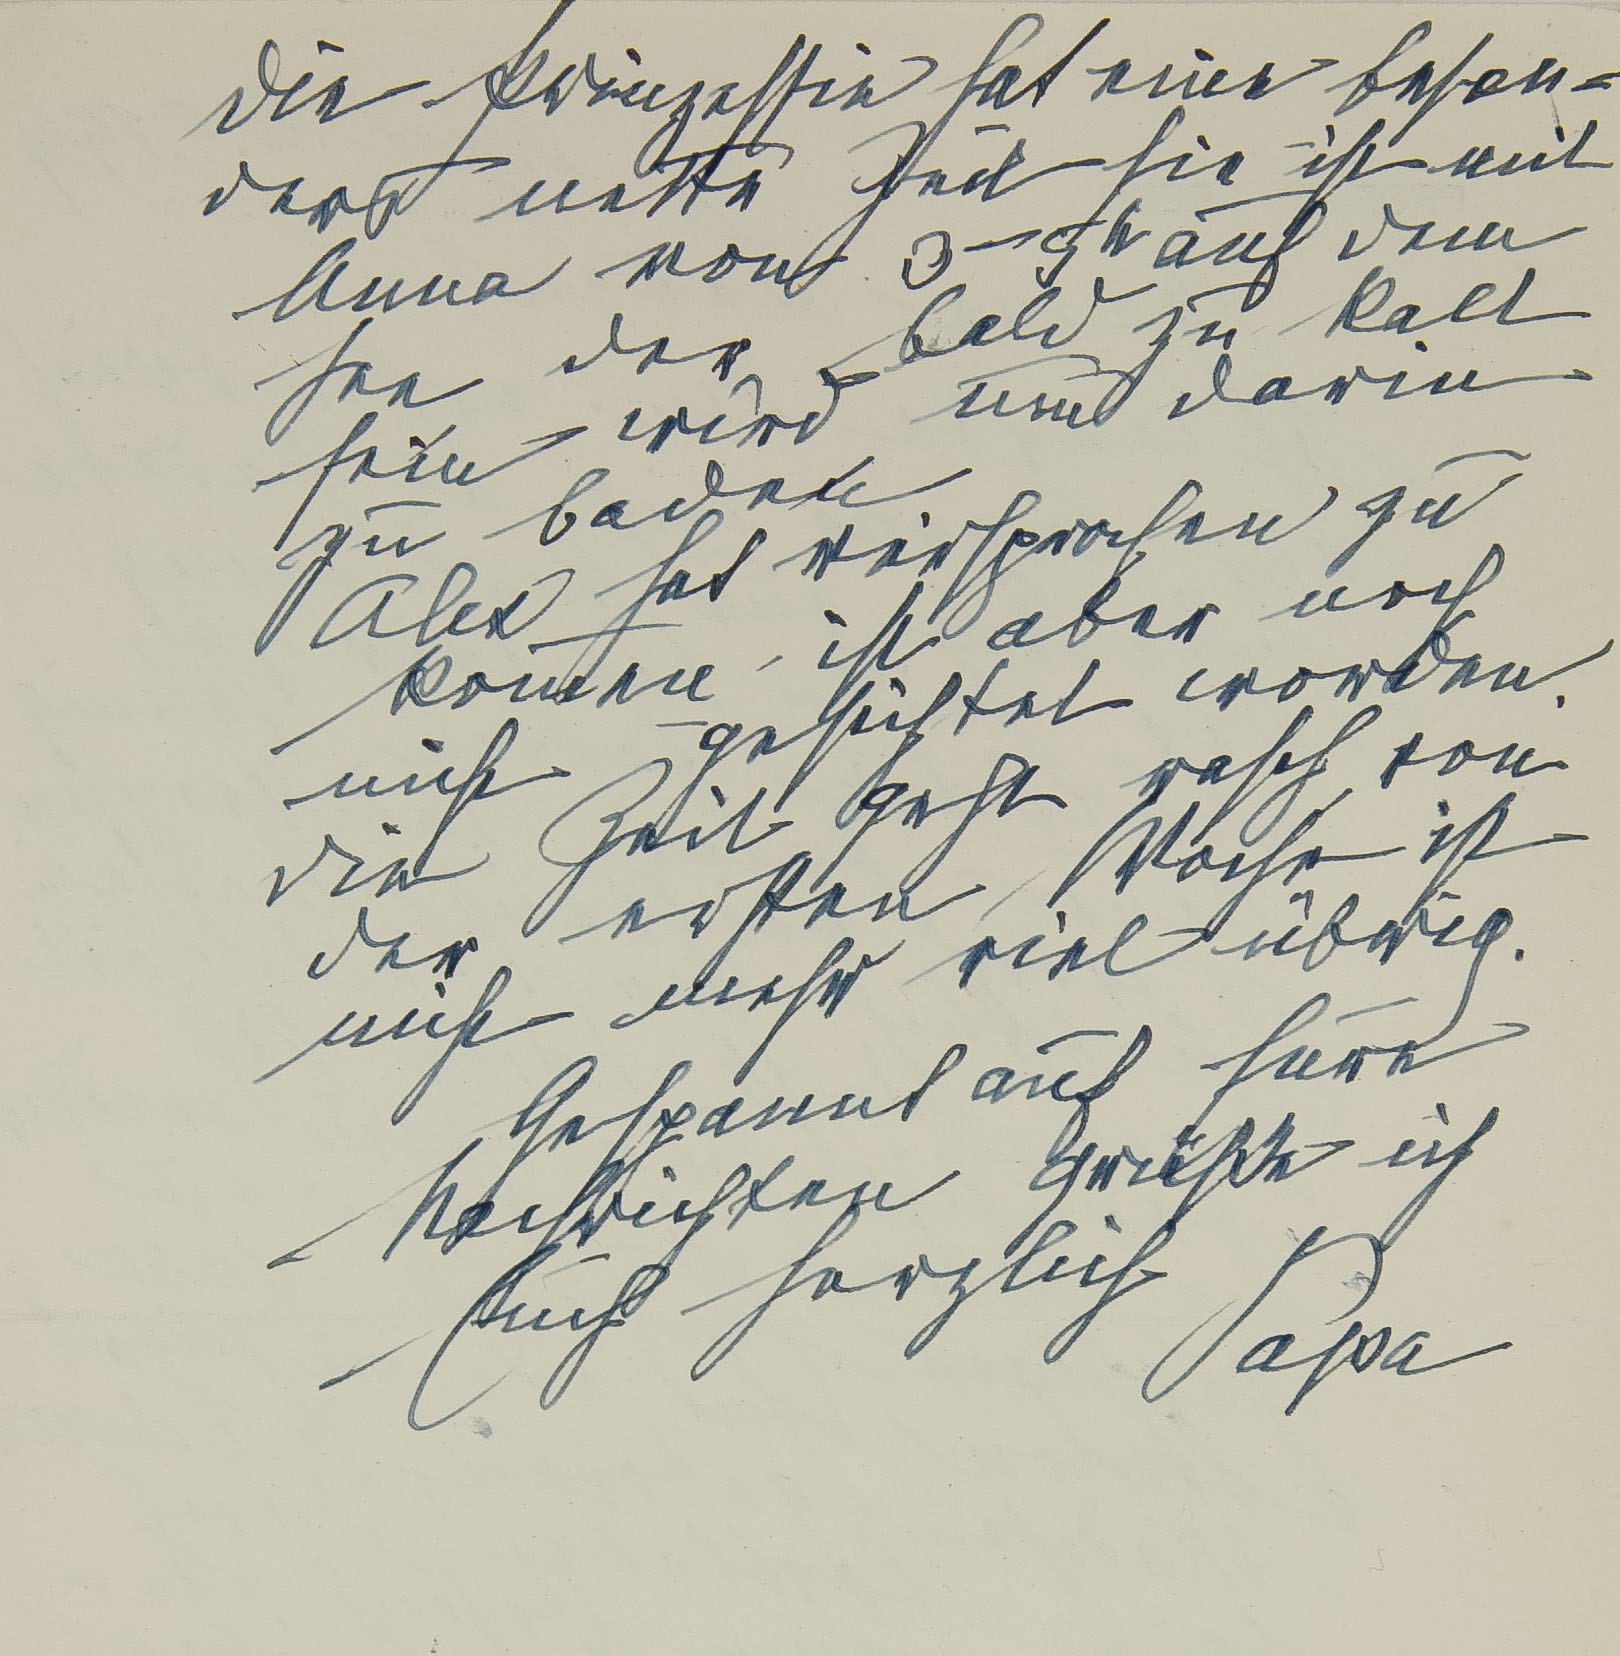 Die Prinzessin hat eine beson=
ders nette Zeit sie ist mit
Anna von 3–5h auf dem
See der bald zu kalt
sein wird um darin
zu baden
Alex hat versprochen zu
kom̅en, ist aber noch
nicht gesichtet worden.
Die Zeit geht rasch, von
der ersten Woche ist
nicht mehr viel übrig.
Gespannt auf Eure
Nachrichten grüßte ich
Euch herzlich
Papa